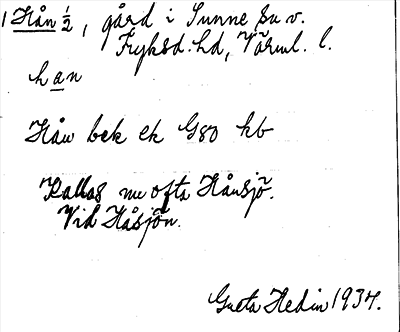 1 Hån 1/2, gård i Sunne sn v.
Fryksd. hd, Värml. l.
han
Hån bek ek G80 kb
Kallas nu ofta Hånsjö.
Vid Håsjön.
Greta Hedin 1934.